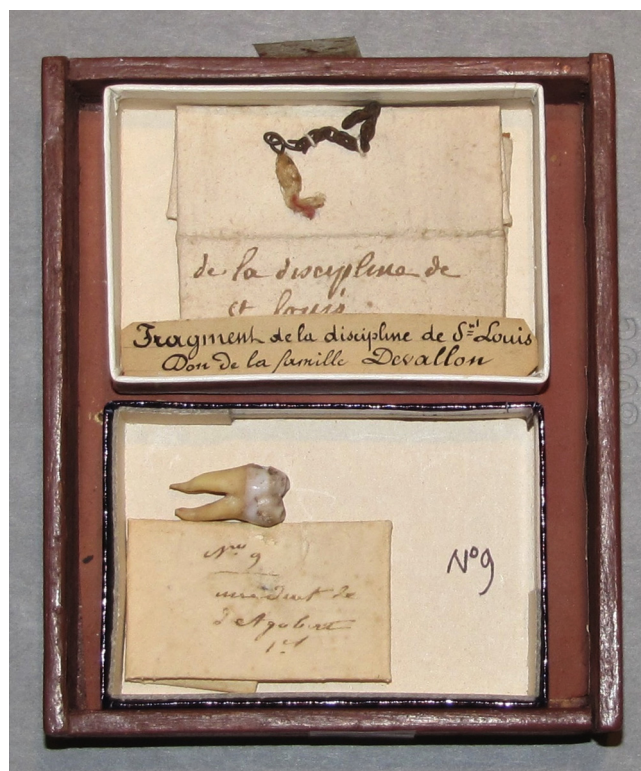 de la discipline de
st louis
Fragment de la discipline de Sᵗ Louis
Don de la famille Devallon
Nro 9
une dent de
d'Agobert
1er
N° 9